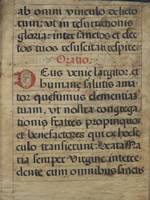 ab omni vinculo delicto
rum: ut in resurrectionis
gloria: inter sanctos et elec
tos tuos resuscitati respiret
Oratio.
Deus venie largitor: et
humane salutis ama
tor quesumus clementiam
tuam: ut nostre congrega
tionis fratres propinquos
et benefactores qui ex hoc se
culo transierunt: Beata Ma
ria semper Virgine interce
dente cum omnibus sanctis